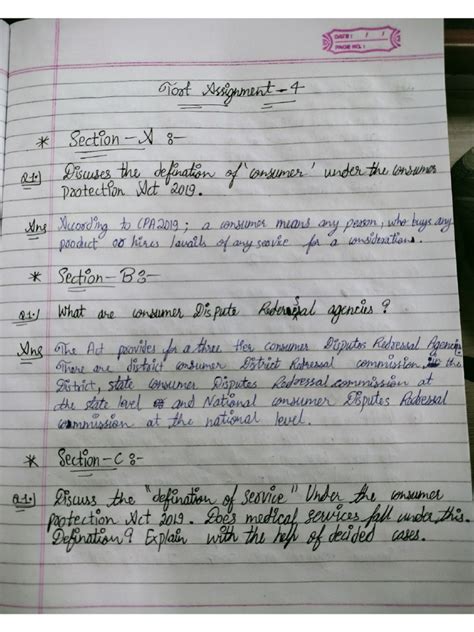 DATE: / /
PAGE NO.:
Tort Assignment - 4
* Section - A :-
Q.1. Discuses the defination of 'consumer' under the consumer
protection Act 2019.
Ans According to CPA2019; a consumer means any person, who buys any
product or hires / avails of any service for a consideration.
* Section - B :-
Q.1. / What are consumer Dispute Redressal agencies ?
Ans The Act provides for a three tier consumer Disputes Redressal Agencies.
There are district consumer District Redressal commission in the
District, state consumer Disputes Redressal commission at
the state level and National consumer Disputes Redressal
commission at the national level.
* Section - C :-
Q.1. Discuss the "defination of service" Under the consumer
protection Act 2019. Does medical services fall under this.
Defination ? Explain with the help of decided cases.